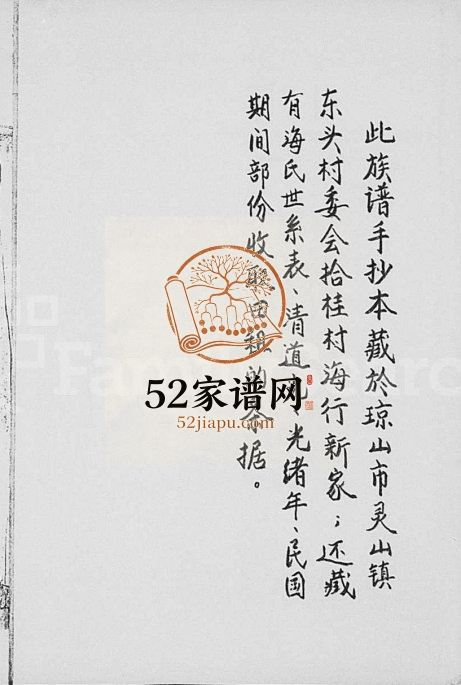 此族谱手抄本藏於琼山市灵山镇
东头村委会拾桂村海行新家；还藏
有海氏世系表、清道光、光绪年、民国
期间部份收取田租的
据。
52家谱网
52jiapu.com